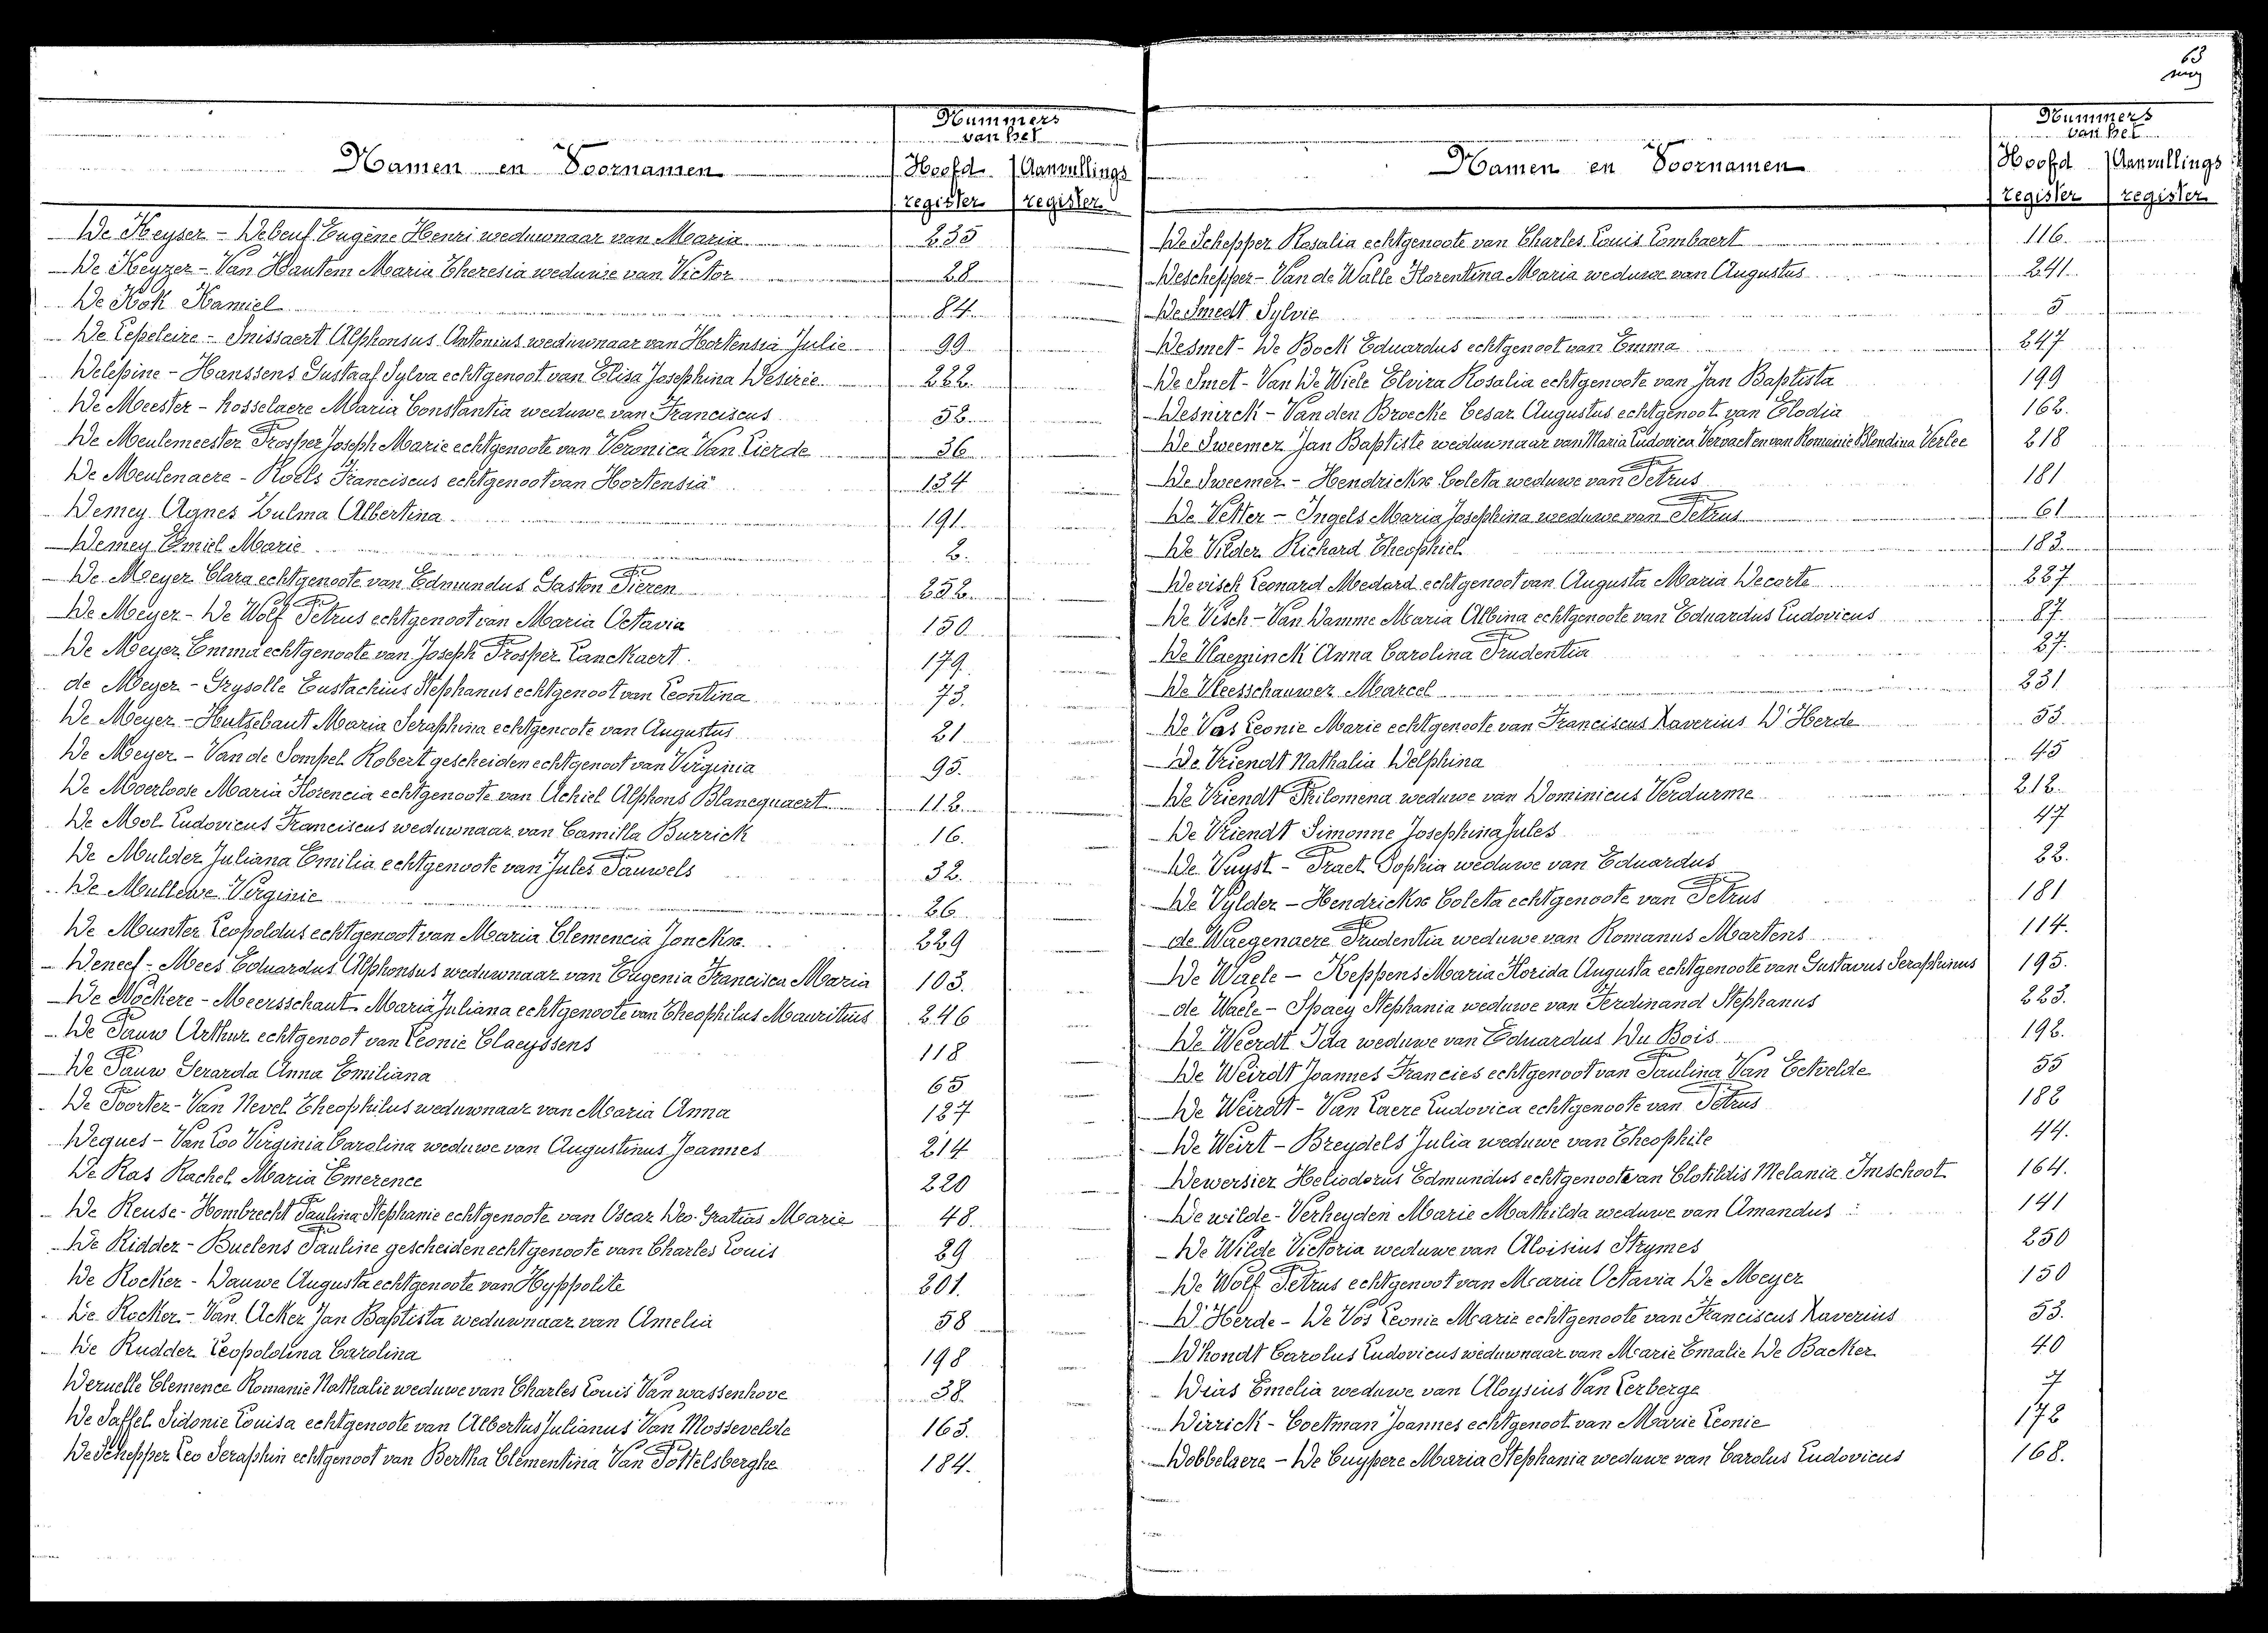 63
Nummers
van het
Namen en Voornamen
Hoofd Aanvullings
register register
De Keyser - Debeuf Eugène Henri weduwnaar van Maria 235
De Keyzer - Van Hautem Maria Theresia weduwe van Victor 28
De Kok Kamiel 84.
De Lepeleire - Snissaert Alphonsus Antonius weduwnaar van Hortensia Julie 99
Delepine - Hanssens Gustaaf Sylva echtgenoot van Elisa Josephina Desirée 222.
De Meester - Rosselaere Maria Constantia weduwe van Franciscus 52.
De Meulemeester Prosper Joseph Marie echtgenoote van Veronica Van Lierde 36
De Meulenaere - Roels Franciscus echtgenoot van Hortensia 134
Demey Agnes Zulma Albertina 191.
Demey Emiel Marie 2.
De Meyer Clara echtgenoote van Edmundus Gaston Pieren 252.
De Meyer - De Wolf Petrus echtgenoot van Maria Octavia 150
De Meyer Emma echtgenoote van Joseph Prosper Lanckaert. 179
de Meyer - Grysolle Eustachius Stephanus echtgenoot van Leontina 73.
De Meyer - Hutsebaut Maria Seraphina echtgenoote van Augustus 21
De Meyer - Van de Sompel Robert gescheiden echtgenoot van Virginia 95.
De Moerloose Maria Florencia echtgenoote van Achiel Alphons Blancquaert 112.
De Mol Ludovicus Franciscus weduwnaar van Camilla Burrick 16.
De Mulder Juliana Emilia echtgenoote van Jules Pauwels 32.
De Mullewe Virginie 26
De Munter Leopoldus echtgenoot van Maria Clemencia Jonckx. 229
Deneef - Mees Eduardus Alphonsus weduwnaar van Eugenia Francisca Maria 103.
De Nockere - Meersschaut Maria Juliana echtgenoote van Theophilus Mauritius 246
De Pauw Arthur echtgenoot van Leonie Claeyssens 118
De Pauw Gerarda Anna Emiliana 65
De Poorter - Van Nevel Theophilus weduwnaar van Maria Anna 127
Deques - Van Loo Virginia Carolina weduwe van Augustinus Joannes 214
De Ras Rachel Maria Emerence 220
De Reuse - Hombrecht Paulina Stephanie echtgenoote van Oscar Deo Gratias Marie 48.
De Ridder - Buelens Pauline gescheiden echtgenoote van Charles Louis 29
De Rocker - Dauwe Augusta echtgenoote van Hyppolite 201.
De Rocker - Van Acker Jan Baptista weduwnaar van Amelia 58
De Rudder Leopoldina Carolina 198
Deruelle Clemence Romanie Nathalie weduwe van Charles Louis Van wassenhove 38.
De Saffel Sidonie Louisa echtgenoote van Albertus Julianus Van Mossevelde 163.
De Schepper Leo Seraphin echtgenoot van Bertha Clementina Van Pottelsberghe 184.
Nummers
van het
Namen en Voornamen
Hoofd Aanvullings
register register
De Schepper Rosalia echtgenoote van Charles Louis Lombaert 116.
Deschepper - Van de Walle Florentina Maria weduwe van Augustus 241
De Smedt Sylvie 5
Desmet - De Bock Eduardus echtgenoot van Emma 247
De Smet - Van De Wiele Elvira Rosalia echtgenoote van Jan Baptista 199
Desnirck - Van den Broecke Cesar Augustus echtgenoot van Elodia 162.
De Sweemer Jan Baptiste weduwnaar van Maria Ludovica Vervaet en van Romanie Blondina Verlee 218
De Sweemer - Hendrickx Coleta weduwe van Petrus 181
De Vetter - Ingels Maria Josephina weduwe van Petrus 61
De Vilder Richard Theophiel 183.
Devisch Leonard Medard echtgenoot van Augusta Maria Decorte 227
De Visch - Van Damme Maria Albina echtgenoote van Eduardus Ludovicus 87.
De Vlaeminck Anna Carolina Prudentia 27.
De Vleesschauwer Marcel 231
De Vos Leonie Marie echtgenoote van Franciscus Xaverius D'Herde 53.
De Vriendt Nathalia Delphina 45
De Vriendt Philomena weduwe van Dominicus Verdurme 212.
De Vriendt Simonne Josephina Jules 47
De Vuyst - Praet Sophia weduwe van Eduardus 22.
De Vylder - Hendrickx Coleta echtgenoote van Petrus 181
de Waegenaere Prudentia weduwe van Romanus Martens 114.
De Waele - Keppens Maria Florida Augusta echtgenoote van Gustavus Seraphinus 195.
de Waele - Spaey Stephania weduwe van Ferdinand Stephanus 223.
De Weerdt Ida weduwe van Eduardus Du Bois 192.
De Weirdt Joannes Francies echtgenoot van Paulina Van Eetvelde 55
De Weirdt - Van Laere Ludovica echtgenoote van Petrus 182
De Weirt - Breydels Julia weduwe van Theophile 44.
Dewersier Heliodorus Edmundus echtgenoot van Clotildis Melania Imschoot 164.
De wilde - Verheyden Marie Mathilda weduwe van Amandus 141
De Wilde Victoria weduwe van Aloisius Strymes 250
De Wolf Petrus echtgenoot van Maria Octavia De Meyer 150
D'Herde - De Vos Leonie Marie echtgenoote van Franciscus Xaverius 53.
D'hondt Carolus Ludovicus weduwnaar van Marie Emalie De Backer 40
Dias Emelia weduwe van Aloysius Van Lerberge 7
Dirrick - Coetman Joannes echtgenoot van Marie Leonie 172
Dobbelaere - De Cuypere Maria Stephania weduwe van Carolus Ludovicus 168.